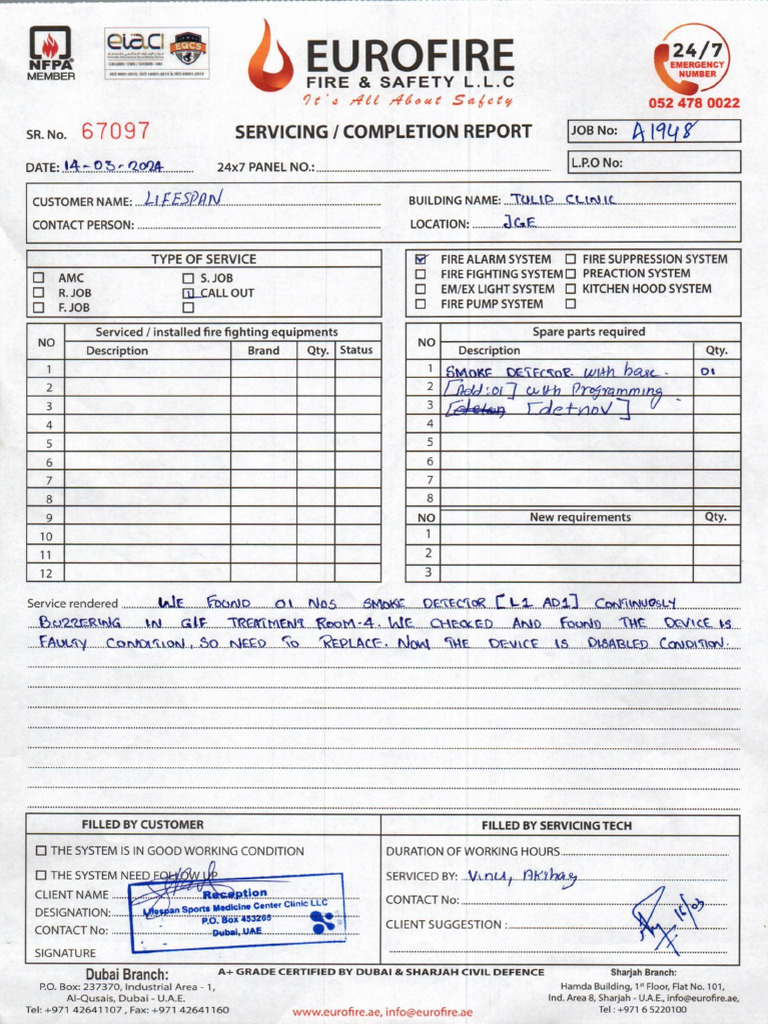 NFPA
MEMBER
eiaci
EQCS
EUROFIRE
FIRE & SAFETY L.L.C
It's All About Safety
24/7
EMERGENCY
NUMBER
052 478 0022
SR. No. 67097
SERVICING / COMPLETION REPORT
JOB No: A1948
DATE: 14-03-2024
24x7 PANEL NO.:
L.P.O No:
CUSTOMER NAME: LIFESPAN
BUILDING NAME: TULIP CLINIC
CONTACT PERSON:
LOCATION: JGE
TYPE OF SERVICE
AMC
S. JOB
R. JOB
CALL OUT
F. JOB
FIRE ALARM SYSTEM
FIRE SUPPRESSION SYSTEM
FIRE FIGHTING SYSTEM
PREACTION SYSTEM
EM/EX LIGHT SYSTEM
KITCHEN HOOD SYSTEM
FIRE PUMP SYSTEM
NO
Serviced / installed fire fighting equipments
Description Brand Qty. Status
1
2
3
4
5
6
7
8
9
10
11
12
NO
Spare parts required
Description Qty.
1 SMOKE DETECTOR with base. 01
2 [Add:01] with Programming
3 [detnov]
4
5
6
7
8
NO New requirements Qty.
1
2
3
Service rendered WE FOUND 01 NOS SMOKE DETECTOR [L1 AD1] CONTINUOSLY
BUZZERING IN G/F TREATMENT ROOM-4. WE CHECKED AND FOUND THE DEVICE IS
FAULTY CONDITION, SO NEED TO REPLACE. NOW THE DEVICE IS DISABLED CONDITION.
FILLED BY CUSTOMER
THE SYSTEM IS IN GOOD WORKING CONDITION
THE SYSTEM NEED FOLLOW UP
CLIENT NAME
DESIGNATION:
CONTACT No:
SIGNATURE
Reception
Lifespan Sports Medicine Center Clinic LLC
P.O. Box 453265
Dubai, UAE
FILLED BY SERVICING TECH
DURATION OF WORKING HOURS
SERVICED BY: Vinu, Akshay
CONTACT No:
CLIENT SUGGESTION :
16/03
Dubai Branch:
P.O. Box: 237370, Industrial Area - 1,
Al-Qusais, Dubai - U.A.E.
Tel: +971 42641107 , Fax: +971 42641160
A+ GRADE CERTIFIED BY DUBAI & SHARJAH CIVIL DEFENCE
www.eurofire.ae, info@eurofire.ae
Sharjah Branch:
Hamda Building, 1st Floor, Flat No. 101,
Ind. Area 8, Sharjah - U.A.E, info@eurofire.ae,
Tel : +971 6 5220100